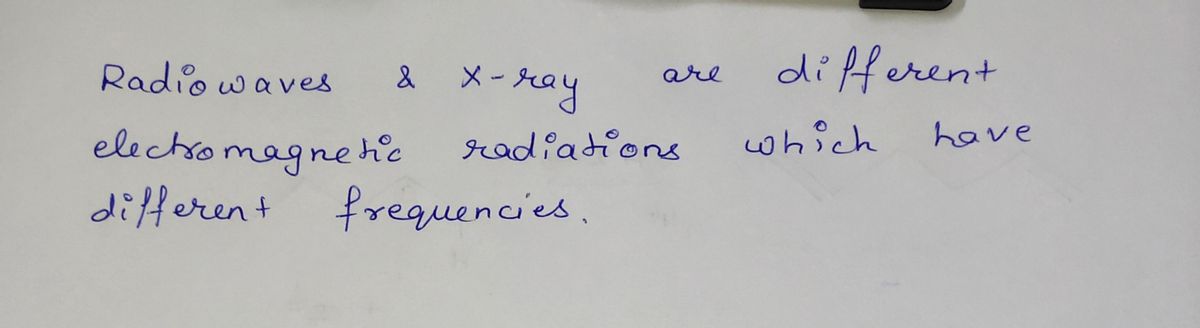 Radiowaves & X-ray are different
electromagnetic radiations which have
different frequencies.